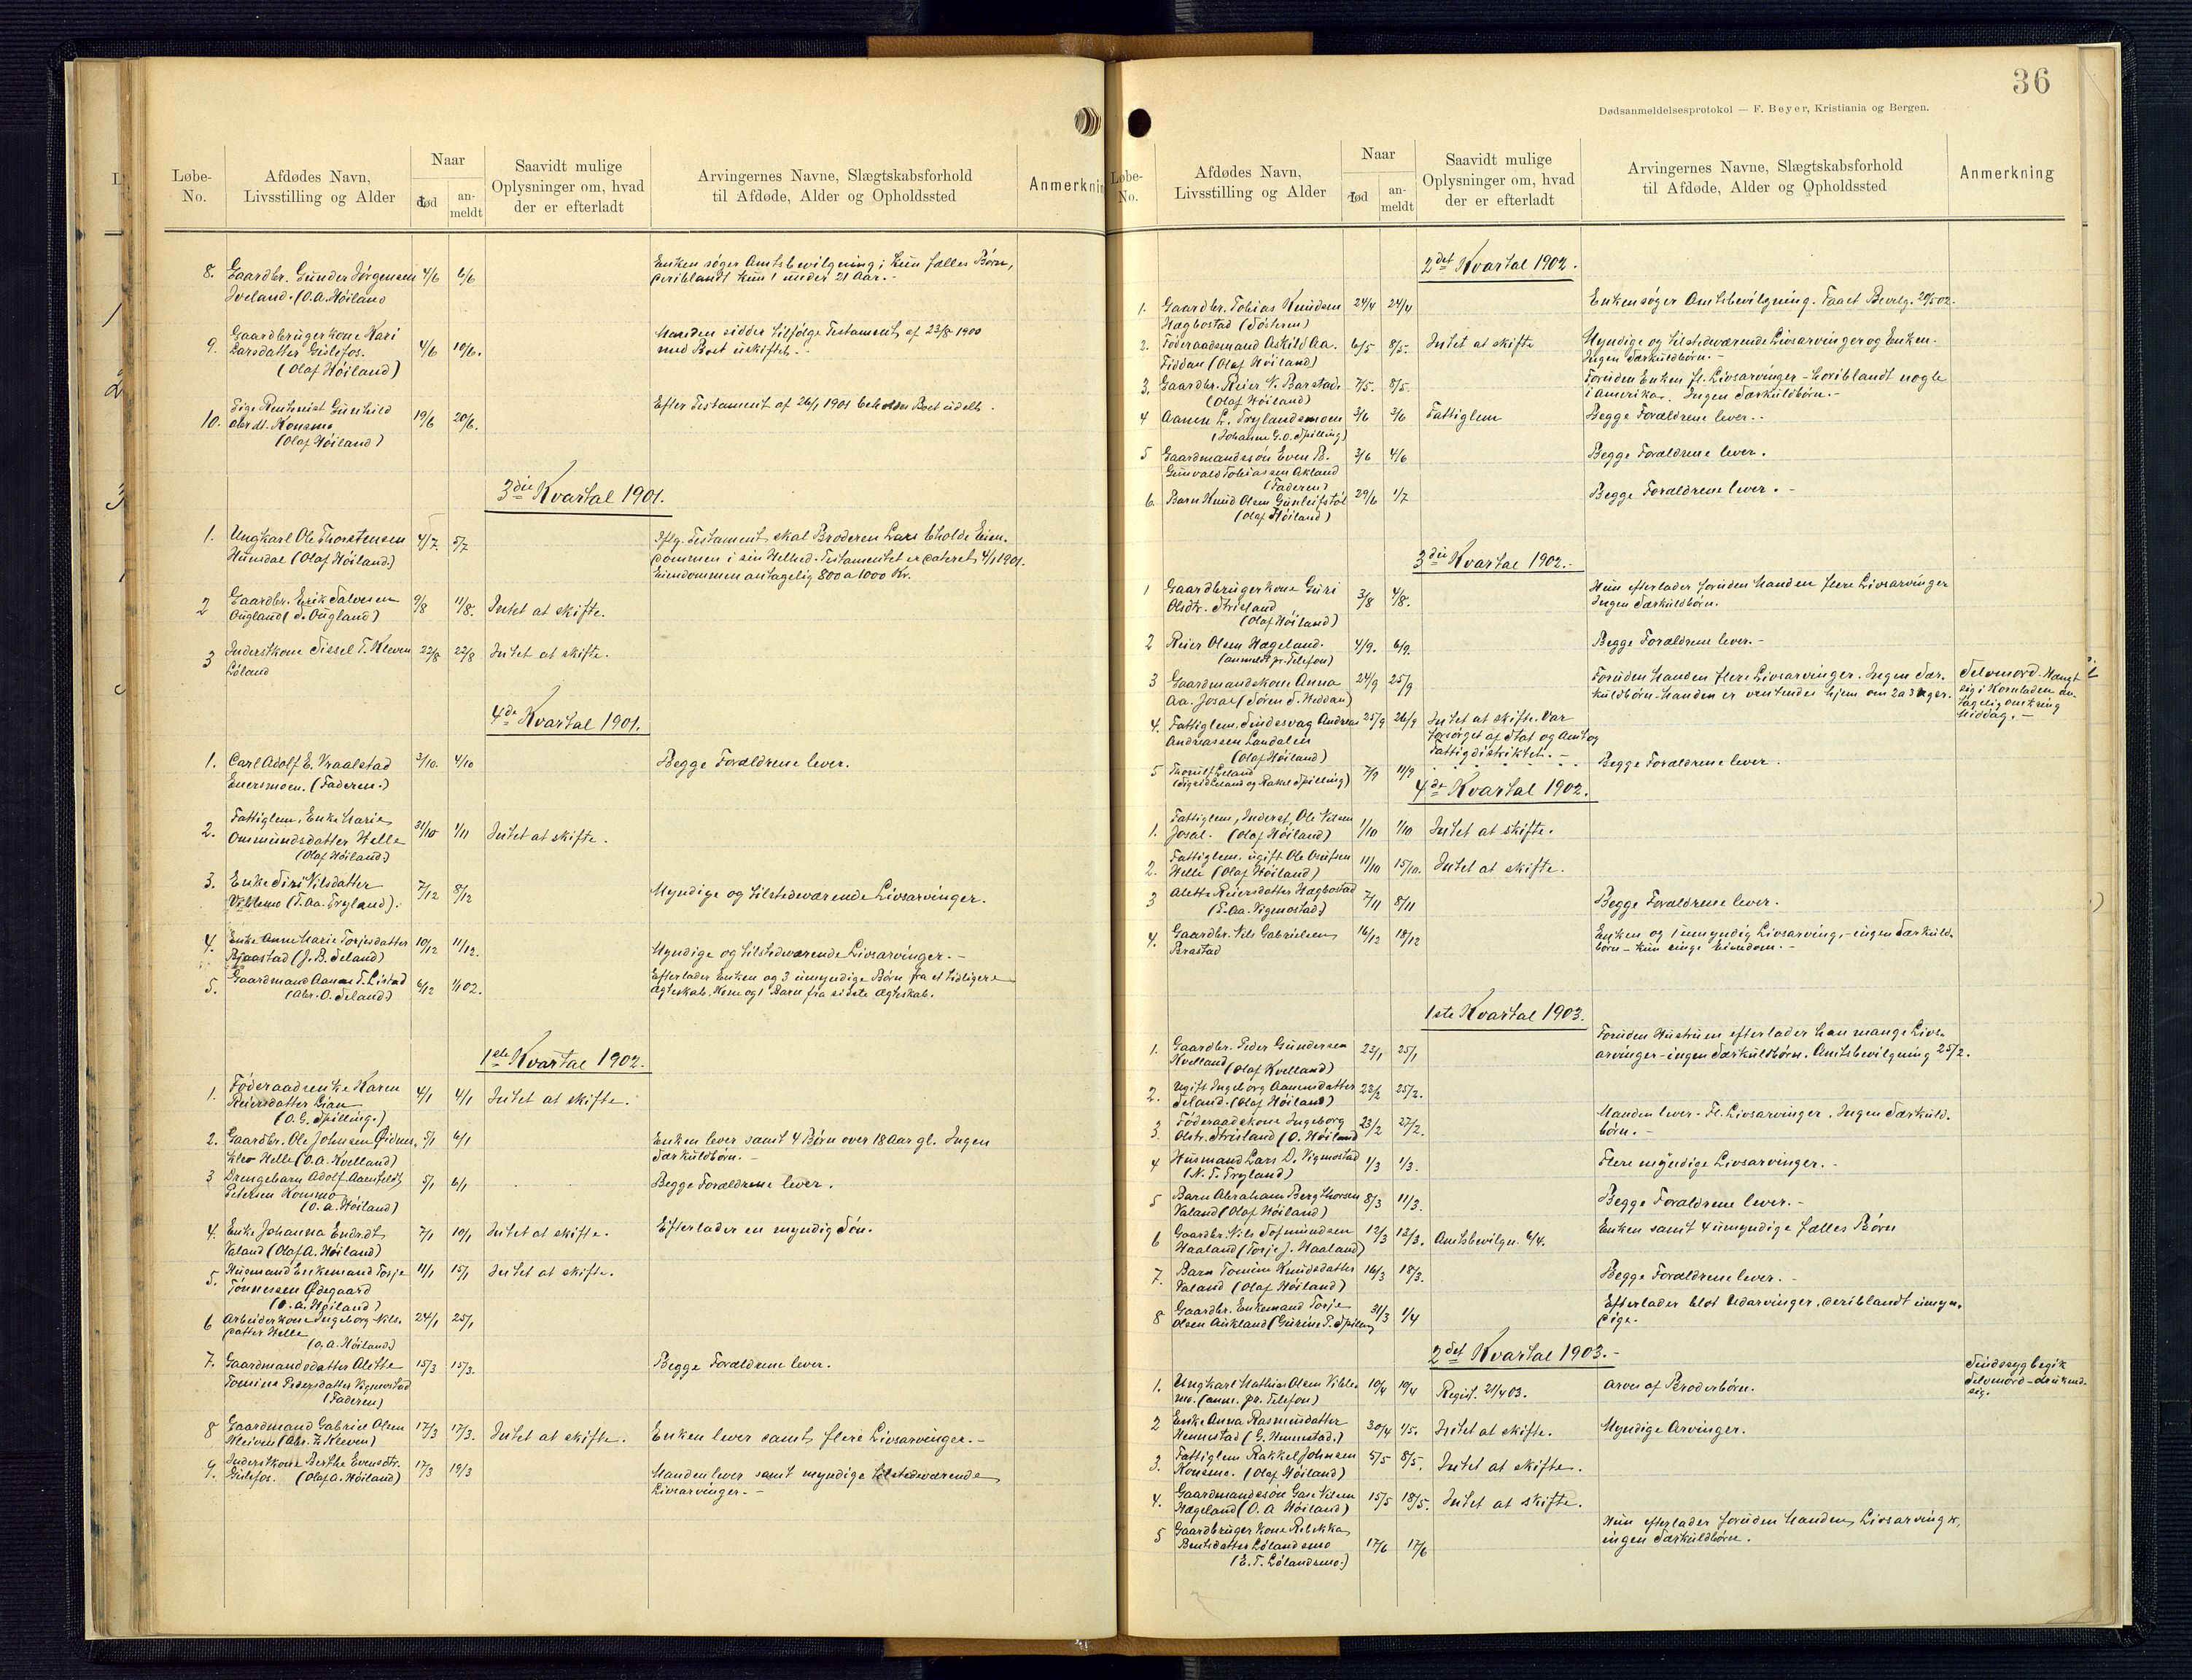 Løbe-
No.
Afdødes Navn,
Livsstilling og Alder
Naar
død
an-
meldt
Saavidt mulige
Oplysninger om, hvad
der er efterladt
Arvingernes Navne, Slægtskabsforhold
til Afdøde, Alder og Opholdssted
Anmerknin
8. Gaardbr. Gunder Jørgensen 4/6 6/6 Enken søger Amtsbevilgning; kun fælles Børn,
Iveland. (O.A. Høiland deriblandt kun 1 under 21 Aar. -
9. Gaardbrugerkone Kari 4/6 10/6. Manden sidder tilfølge Testament af 23/8 1900
Larsdatter Gislefos. med Boet uskiftet. -
(Olaf Høiland)
10. Pige Gunhild 19/6 20/6. Efter Testament af 26/1 1901 Boet udelt.
Konsmo
(Olaf Høiland)
3die Kvartal 1901.
1. Ungkarl Ole Thorstensen 4/7. 5/7 Iflg. Testament skal Broderen Lars beholde Eien-
Hunsdal (Olaf Høiland.) dommen i sin Helhed. Testamentet er dateret 4/1 1901.
Eiendommen antagelig 800 a 1000 Kr.
2 Gaardbr. Erik Salvesen 9/8 11/8. Intet at skifte.
Øugland (S. Øugland)
3 Inderstkone Sissel T. Kleven 22/8 22/8 Intet at skifte.
Løland
4de Kvartal 1901.
1. Carl Adolf E. Vraalstad 3/10. 4/10 Begge Forældrene lever.
Eversmoen. (Faderen.)
2. Fattiglem, Enke Marie 31/10 1/11 Intet at skifte.
Ommundsdatter Helle
(Olaf Høiland.)
3. Enke Siri Nilsdatter 7/12 8/12 Myndige og tilstedeværende Livsarvinger.
Viblemo (T. Aa. Tryland).
4. Enke Anne Marie Torjesdatter 10/12 11/12. Myndige og tilstedeværende Livsarvinger. -
Bjaastad (J. B. Seland)
5. Gaardmand Aanen T. Listad 6/12 1/1 02. Efterlader Enken og 3 umyndige Børn fra et tidligere
(Abr. O. Seland) Ægteskab, Kone og 1 Barn fra sidste Ægteskab.
1ste Kvartal 1902.
1. Føderaadsenke Karen 4/1 4/1 Intet at skifte.
Reiersdatter Lian
(O. G. Spilling.)
2. Gaardbr. Ole Johnsen Øidne- 5/1 6/1 Enken lever samt 4 Børn over 18 Aar gl. Ingen
klev Helle (O. A. Kvelland) Særkuldbørn. -
3 Drengebarn Adolf Aanfeldt 5/1 6/1 Begge Forældrene lever.
Petersen Konsmo
(O. A. Høiland)
4. Enke Johanna Endr.dt. 7/1 10/1 Intet at skifte. Efterlader en myndig Søn.
Valand (Olaf A. Høiland)
5. Husmand Enkemand Torje 11/1 15/1 Intet at skifte.
Tønnessen Ødegaard
(O. A. Høiland)
6 Arbeiderkone Ingeborg Nils- 24/1 25/1
datter Helle
(O. A. Høiland)
7. Gaardmandsdatter Alette 15/3 15/3. Begge Forældrene lever.
Tomine Pedersdatter Vigmostad
(Faderen)
8 Gaardmand Gabriel Olsen 17/3 17/3. Intet at skifte. Enken lever samt flere Livsarvinger. -
Kleiven (Abr. Z. Kleven)
9. Inderstkone Berthe Evensdtr. 17/3 19/3 Manden lever samt myndige tilstedeværende
Gislefos. (Olaf A. Høiland) Livsarvinger. -
36
Dødsanmeldelsesprotokol — F. Beyer, Kristiania og Bergen.
Løbe-
No.
Afdødes Navn,
Livsstilling og Alder
Naar
død
an-
meldt
Saavidt mulige
Oplysninger om, hvad
der er efterladt
Arvingernes Navne, Slægtskabsforhold
til Afdøde, Alder og Opholdssted
Anmerkning
2det Kvartal 1902.
1. Gaardbr. Tobias Knudsen 24/4 24/4 Enken søger Amtsbevilgning. Faaet Bevilg. 20/5 02.
Hægbostad (Søsteren)
2. Føderaadsmand Askild Aa. 6/5 8/5. Intet at skifte Myndige og tilstedeværende Livsarvinger og Enken.
Fiddan (Olaf Høiland) Ingen Særkuldbørn. -
3. Gaardbr. Reier N. Barstad 7/5. 8/5. Foruden Enken fl. Livsarvinger - hvoriblandt nogle
(Olaf Høiland) i Amerika. Ingen Særkuldbørn. -
4 Aanen L. Trylandsmoen 3/6 3/6 Fattiglem Begge Forældrene lever. -
(Johanne G. O. Spilling)
5 Gaardmandssøn Even B. 3/6 4/6 Begge Forældrene lever.
Gunvald Tobiassen Akland
(Faderen)
6. Barn Knud Olsen Gunleifstøl 29/6 1/7 Begge Forældrene lever. -
(Olaf Høiland)
3die Kvartal 1902. -
1 Gaardbrugerkone Guri 3/8 4/8. Hun efterlader foruden Manden flere Livsarvinger
Olsdtr. Strisland Ingen Særkuldbørn.
(Olaf Høiland)
2 Reier Olsen Hægeland. 4/9. 6/9. Begge Forældrene lever. -
(anmeldt pr. Telefon)
3 Gaardmandskone Anna 24/9 25/9 Foruden Manden flere Livsarvinger. Ingen Sær- Selvmord. Hængt
Aa. Josal (Søren S. Heddan) kuldbørn. Manden er ventendes hjem om 2 a 3 Uger. sig i Kornladen an-
tagelig omkring
Middag. -
4. Fattiglem. Sindssvag Andreas 25/9 26/9 Intet at skifte. Var
Andreassen Landalen forsørget af Stat og Amt og
(Olaf Høiland) Fattigdistriktet. -
5 Thorulf Leland 7/9 11/9 Begge Forældrene lever.
(Sigrid Leland og Rakel Spilling)
4de Kvartal 1902.
1. Fattiglem, Inderst, Ole Nilsen 1/10 1/10 Intet at skifte.
Josal. (Olaf Høiland)
2. Fattiglem. ugift Ole Osufsen 11/10 15/10. Intet at skifte.
Helle (Olaf Høiland)
3 Alette Reiersdatter Hægbostad 7/11 8/11 Begge Forældrene lever.
(S. Aa. Vigmostad)
4. Gaardbr. Nils Gabrielsen 16/12 18/12 Enken og 1 umyndig Livsarving, - ingen Særkuld-
Brastad børn - kun ringe Eiendom. -
1ste Kvartal 1903.
1. Gaardbr. Peder Gundersen 23/1 25/1 Foruden Hustruen efterlader han mange Livs-
Kvelland (Olaf Kvelland) arvinger - ingen Særkuldbørn. Amtsbevilgning 25/2.
2. Ugift Ingeborg Aanensdatter 23/2 25/2.
Seland. (Olaf Høiland)
3. Føderaadskone Ingeborg 23/2 27/2. Manden lever - Fl. Livsarvinger. Ingen Særkuld-
Olsdtr. Strisland (O. Høiland børn. -
4 Husmand Lars D. Vigmostad 1/3 1/3. Flere myndige Livsarvinger. -
(N. T. Tryland)
5 Barn Abraham Bergthorsen 8/3 11/3. Begge Forældrene lever. -
Valand (Olaf Høiland)
6 Gaardbr. Nils Sofmundsen 12/3 12/3. Amtsbevilgn. 6/4. Enken samt 4 umyndige fælles Børn
Haaland (Torje J. Haaland)
7. Barn Tomine Knudsdatter 16/3 18/3. Begge Forældrene lever. -
Valand (Olaf Høiland)
8 Gaardbr. Enkemand Torje 31/3 1/4 Efterlader blot Udarvinger, deriblandt umyn-
Olsen Aukland (Gurine P. Spilling dige.
2det Kvartal 1903. -
1. Ungkarl Mathias Olsen Vible- 10/4 10/4 Regist. 21/4 03. Arves af Broderbørn. Sindssyg begik
mo. (anm. pr. Telefon) Selvmord - druknede
sig.
2 Enke Anna Rasmusdatter 30/4 1/5. Intet at skifte. Myndige Arvinger.
Hunnestad (G. Hunnestad.)
3. Fattiglem Rakkel Johnsen 5/5 8/5. Intet at skifte.
Konsmo. (Olaf Høiland)
4. Gaardmandssøn Gare Nilsen 15/5 18/5. Intet at skifte.
Hægeland (O. A Høiland)
5 Gaardbrugerkone Rebekka 17/6 17/6 Hun efterlader foruden Manden Livsarvinger,
Berntsdatter Lølandsmo ingen Særkuldbørn.
(E. T. Lølandsmo.)